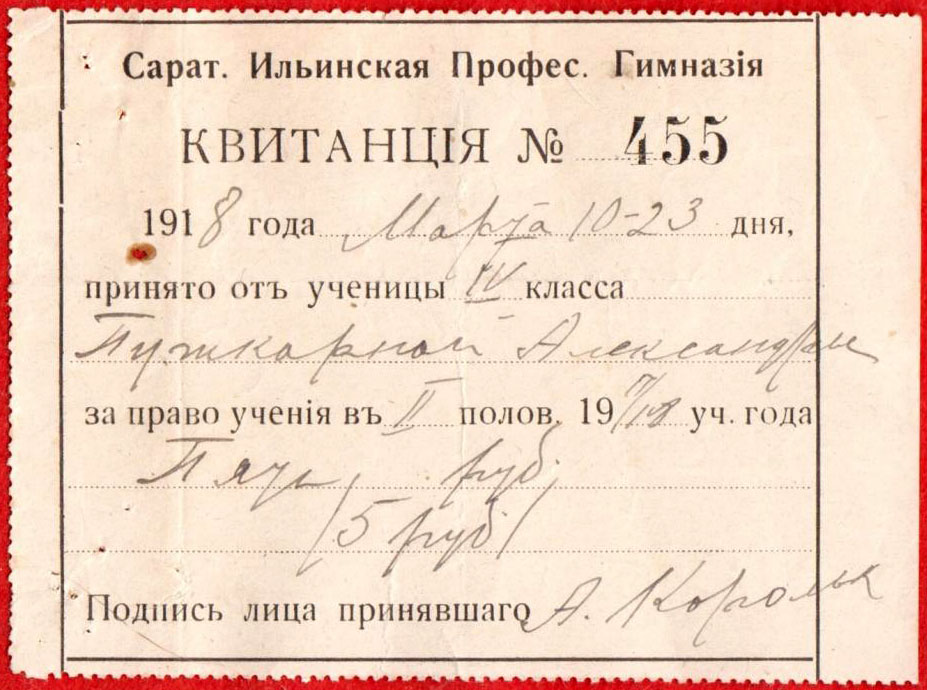 Сарат. Ильинская Профес. Гимназія
КВИТАНЦІЯ № 455
1918 года Марта 10-23 дня,
принято отъ ученицы IV класса
Пушкарной Александры
за право ученія въ II полов. 1917/18 уч. года
Пять руб.
(5 руб)
Подпись лица принявшаго А. Король